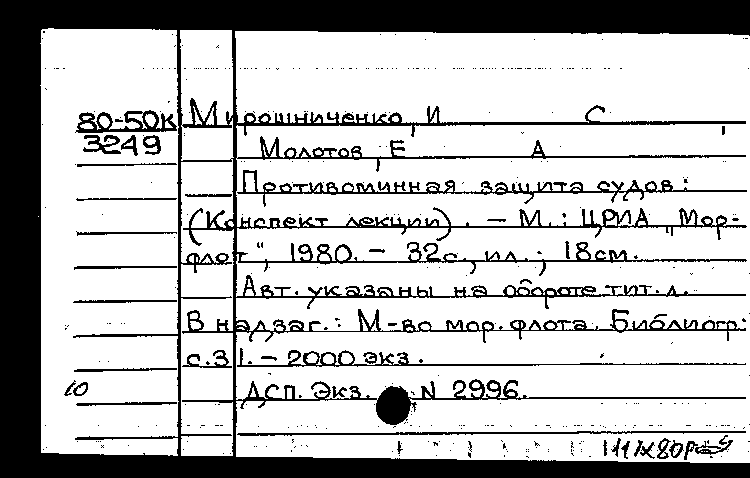 80-50К Мирошниченко, И С
3249 Молотов, Е А
Противоминная защита судов:
(Конспект лекции). - М.: ЦРИА „Мор-
флот", 1980. - 32с., ил.; 18см.
Авт. указаны на обороте тит. л.
В надзаг.: М-во мор. флота. Библиогр:
с.31. - 2000 экз.
10 ДСП. Экз. N 2996.